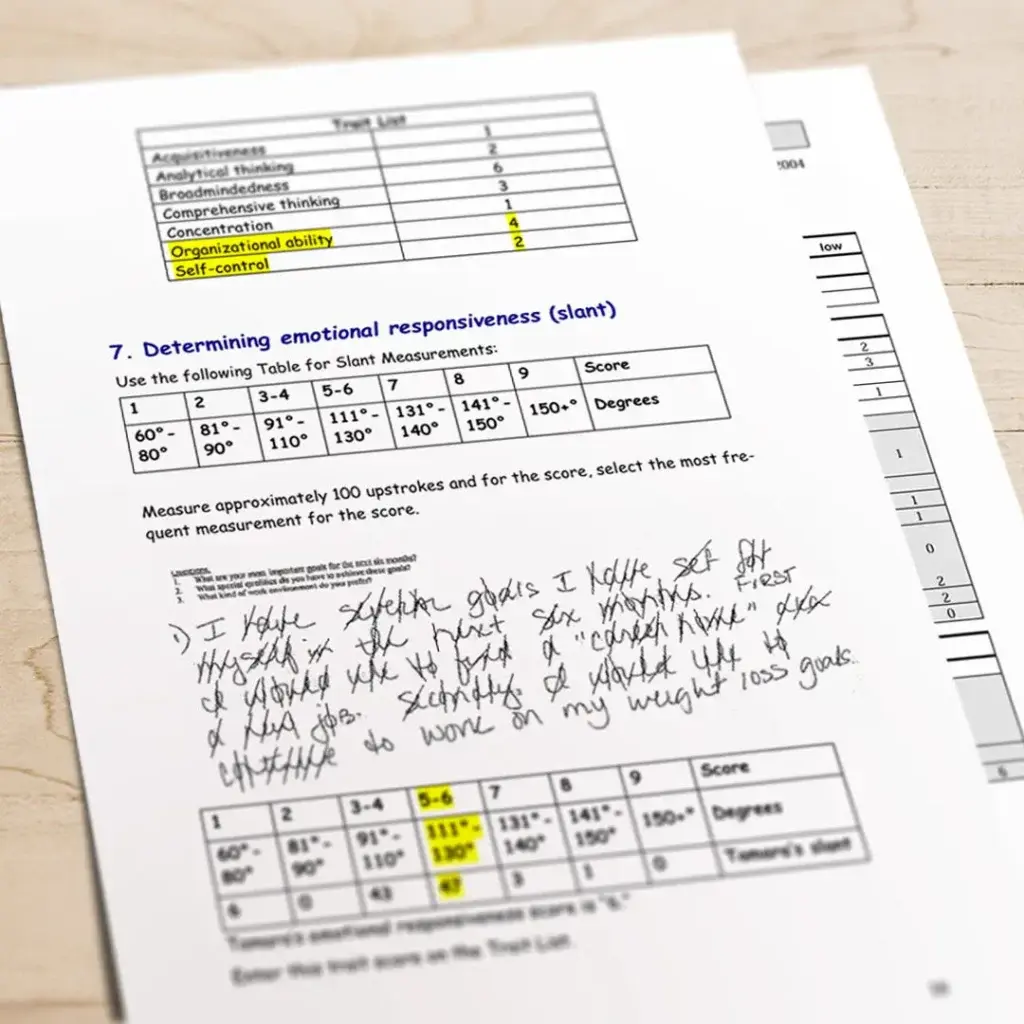 Trait List
Acquisitiveness 1
Analytical thinking 2
Broadmindedness 6
Comprehensive thinking 3
Concentration 1
Organizational ability 4
Self-control 2
7. Determining emotional responsiveness (slant)
Use the following Table for Slant Measurements:
1 2 3-4 5-6 7 8 9 Score
60°- 81°- 91°- 111°- 131°- 141°- 150+° Degrees
80° 90° 110° 130° 140° 150°
Measure approximately 100 upstrokes and for the score, select the most fre-
quent measurement for the score.
1. What are your most important goals for the next six months?
2. What special qualities do you have to achieve these goals?
3. What kind of work environment do you prefer?
1) I have set for
myself in the next six months. First
I would like to find a "career home" and
a new job. Secondly, I would like to
continue to work on my weight loss goals.
1 2 3-4 5-6 7 8 9 Score
60°- 81°- 91°- 111°- 131°- 141°- 150+° Degrees
80° 90° 110° 130° 140° 150°
6 0 43 47 3 1 0 Tamara's slant
Tamara's emotional responsiveness score is "6."
Enter this trait score on the Trait List.
2004
low
2
3
1
1
1
1
0
2
2
0
6